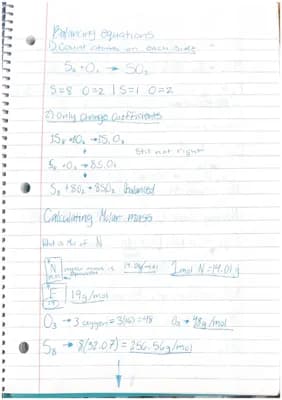 Balancing Equations
1) Count atoms on each side
S₈ + O₂ → SO₂
S=8 O=2 | S=1 O=2
2) Only change coefficients
Still not right
S₈ + 8O₂ → 8SO₂ Balanced
Calculating Molar mass
What is Mm of N
N molar mass is 14.01g/mol 1 mol N = 14.01 g
F 19g/mol
O₃ → 3 oxygen = 3(16) = 48 O₃ → 48g/mol
S₈ → 8(32.07) = 256.56g/mol